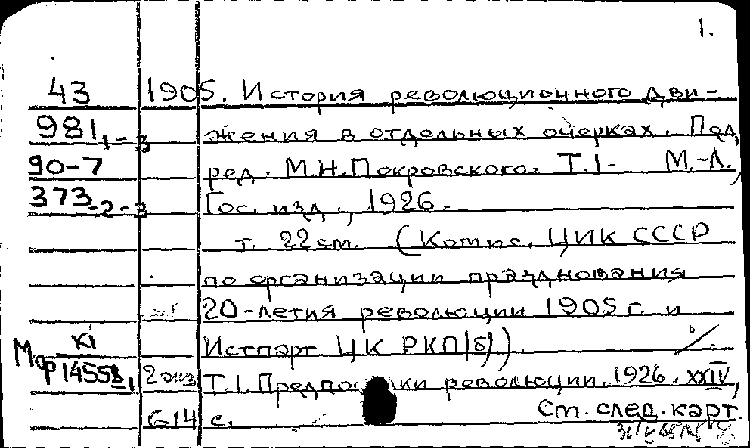 1.
43 1905. История революционного дви-
981,1-3 жения в отдельных очерках. Под
90-7 ред. М.Н.Покровского. Т.1- М.-Л.,
373-2-3 Гос. изд., 1926-
т. 22 см. (Комис. ЦИК СССР
по организации празднования
20-летия революции 1905 г. и
XI Истпарт ЦК РКП(б))
Мф 1455 2 экз Т.1. Предпосылки революции. 1926. XXIV,
614 с. См. след. карт.